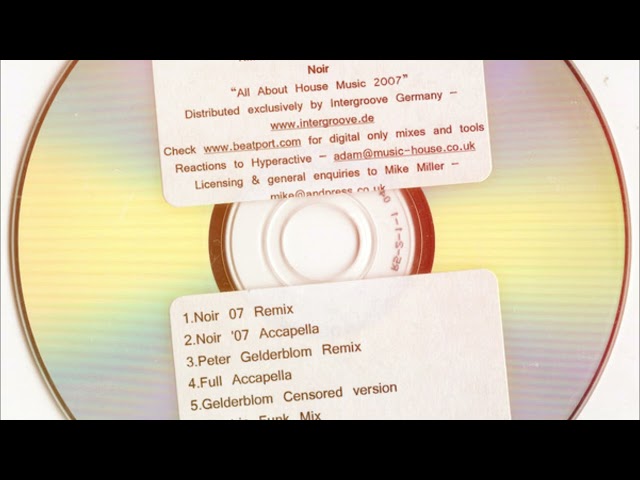 Noir
“All About House Music 2007”
Distributed exclusively by Intergroove Germany –
www.intergroove.de
Check www.beatport.com for digital only mixes and tools
Reactions to Hyperactive – adam@music-house.co.uk
Licensing & general enquiries to Mike Miller –
mike@andpress.co.uk
1.Noir 07 Remix
2.Noir '07 Accapella
3.Peter Gelderblom Remix
4.Full Accapella
5.Gelderblom Censored version
Funk Mix